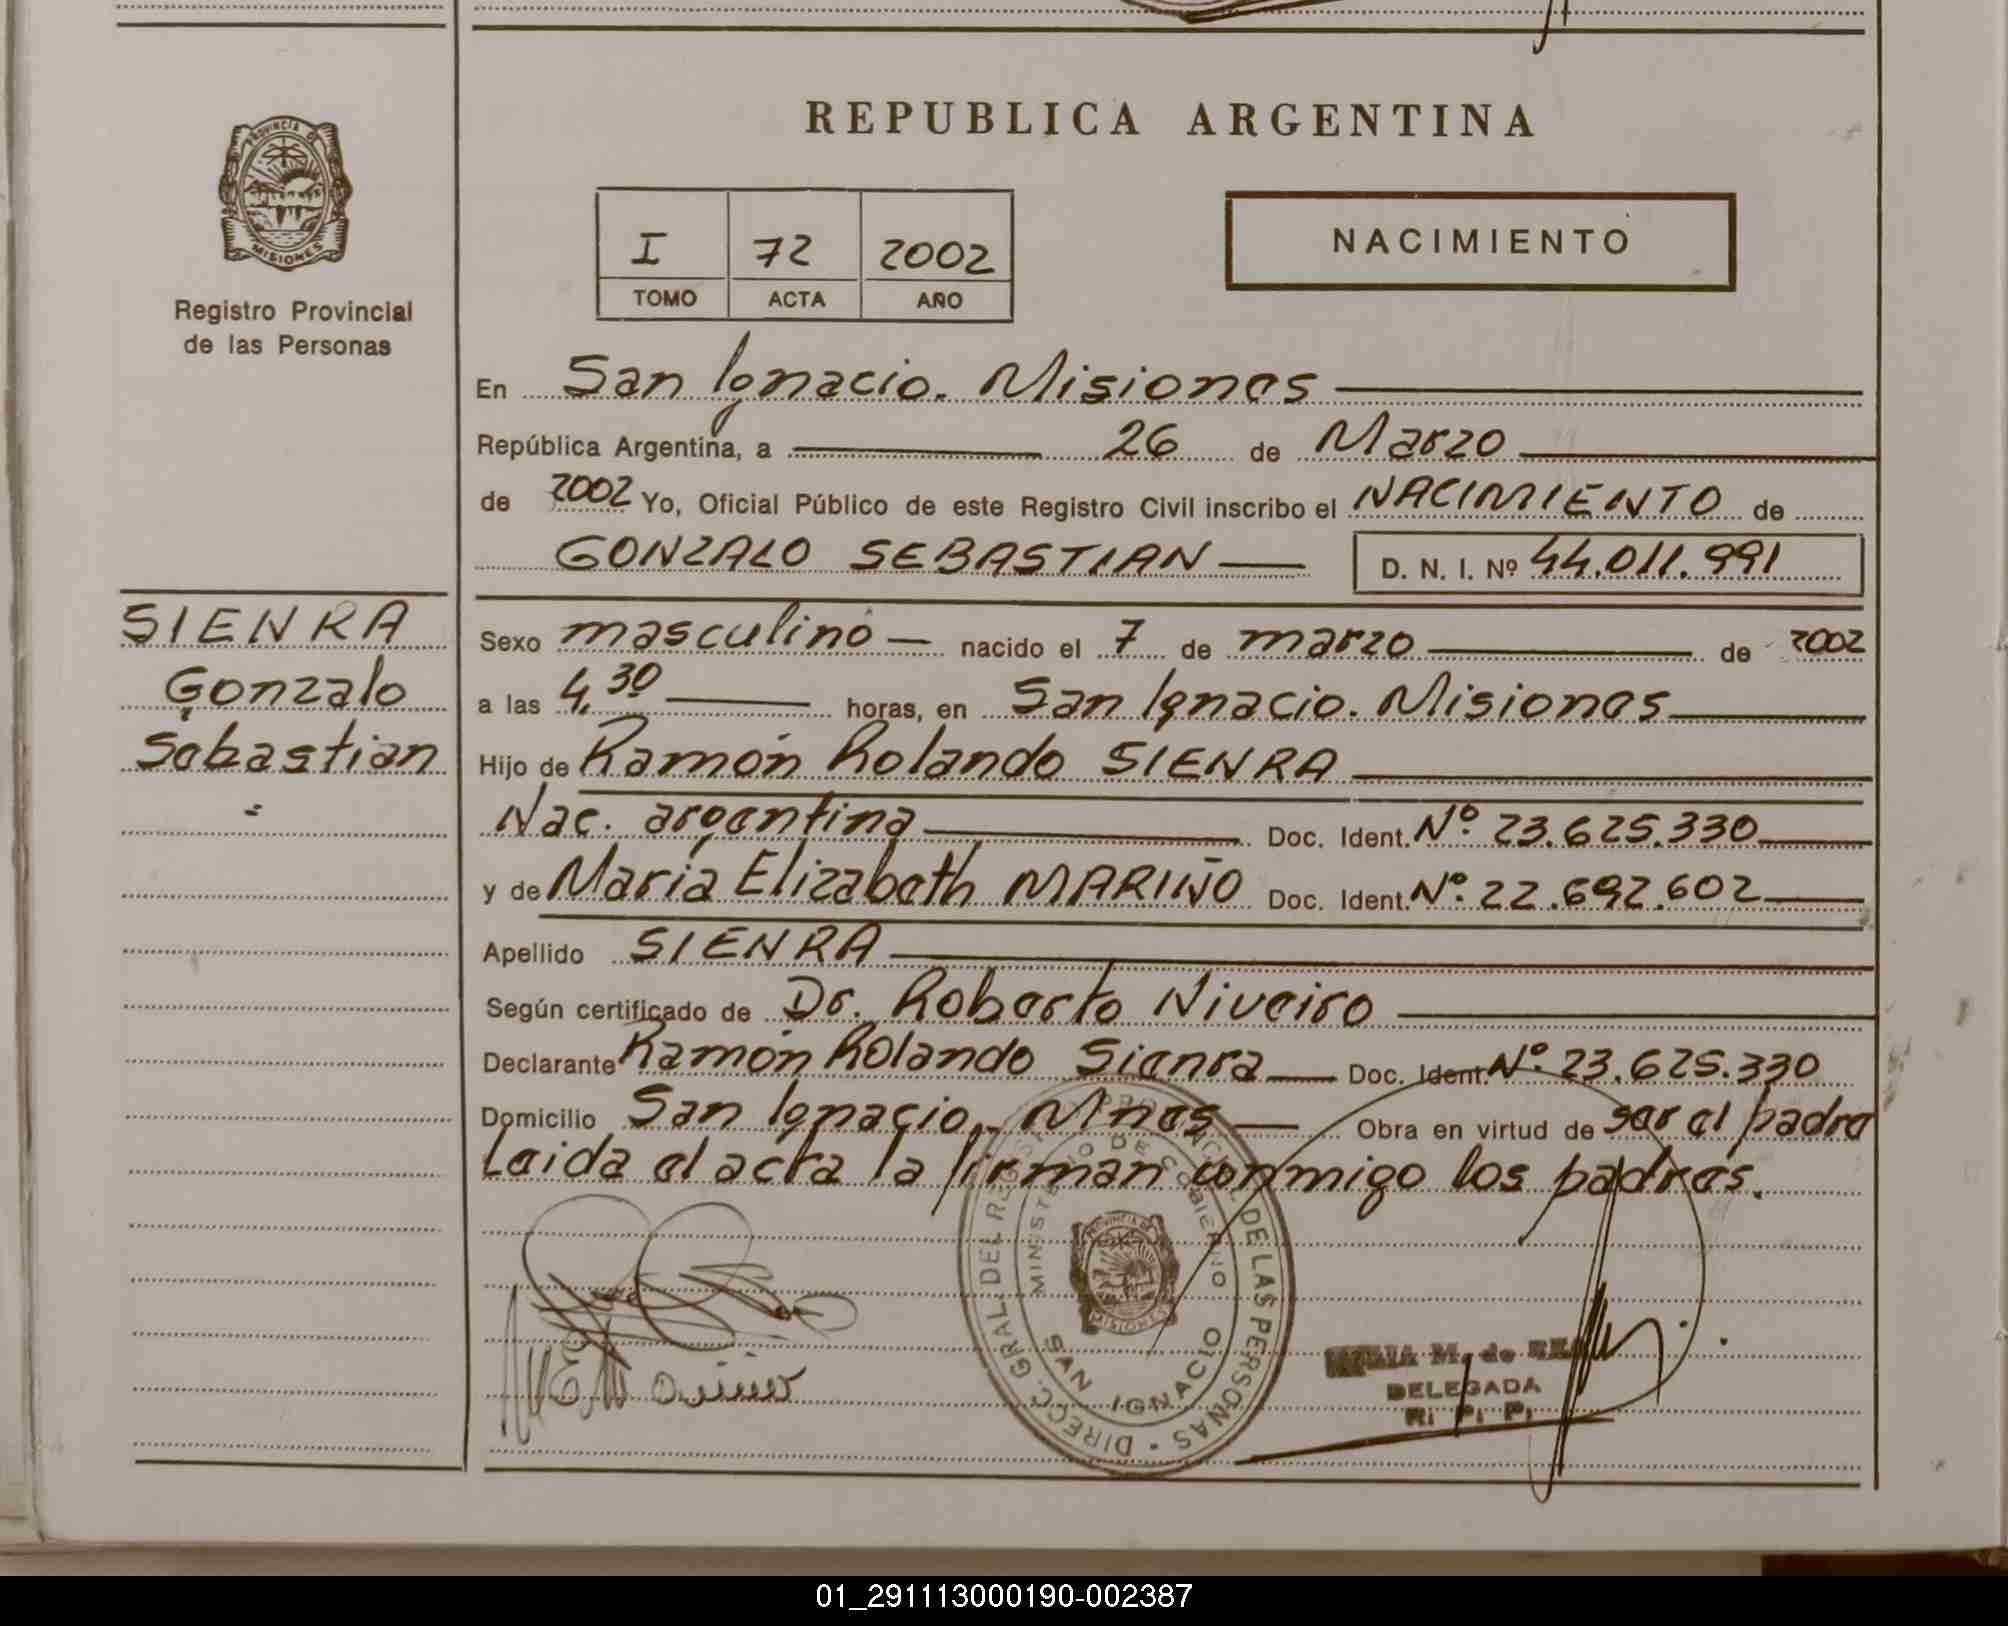 REPUBLICA ARGENTINA
PROVINCIA DE
MISIONES
Registro Provincial
de las Personas
I 72 2002
TOMO ACTA AÑO
NACIMIENTO
En San Ignacio. Misiones
República Argentina, a 26 de Marzo
de 2002 Yo, Oficial Público de este Registro Civil inscribo el NACIMIENTO de
GONZALO SEBASTIAN D. N. I. Nº 44.011.991
SIENRA
Gonzalo
Sebastian
Sexo masculino nacido el 7 de marzo de 2002
a las 4,30 horas, en San Ignacio. Misiones
Hijo de Ramón Rolando SIENRA
Nac. argentina Doc. Ident. Nº 23.625.330
y de Maria Elizabeth MARIÑO Doc. Ident. Nº 22.692.602
Apellido SIENRA
Según certificado de Dr. Roberto Niveiro
Declarante Ramón Rolando Sienra Doc. Ident. Nº 23.625.330
Domicilio San Ignacio, Mnes Obra en virtud de ser el padre
Leida el acta la firman conmigo los padres.
DIRECC. GRAL. DEL REGISTRO PROVINCIAL DE LAS PERSONAS
MINISTERIO DE GOBIERNO
PROVINCIA DE
MISIONES
SAN IGNACIO
M E Mariño
M. de
DELEGADA
R. P. P.
01_291113000190-002387